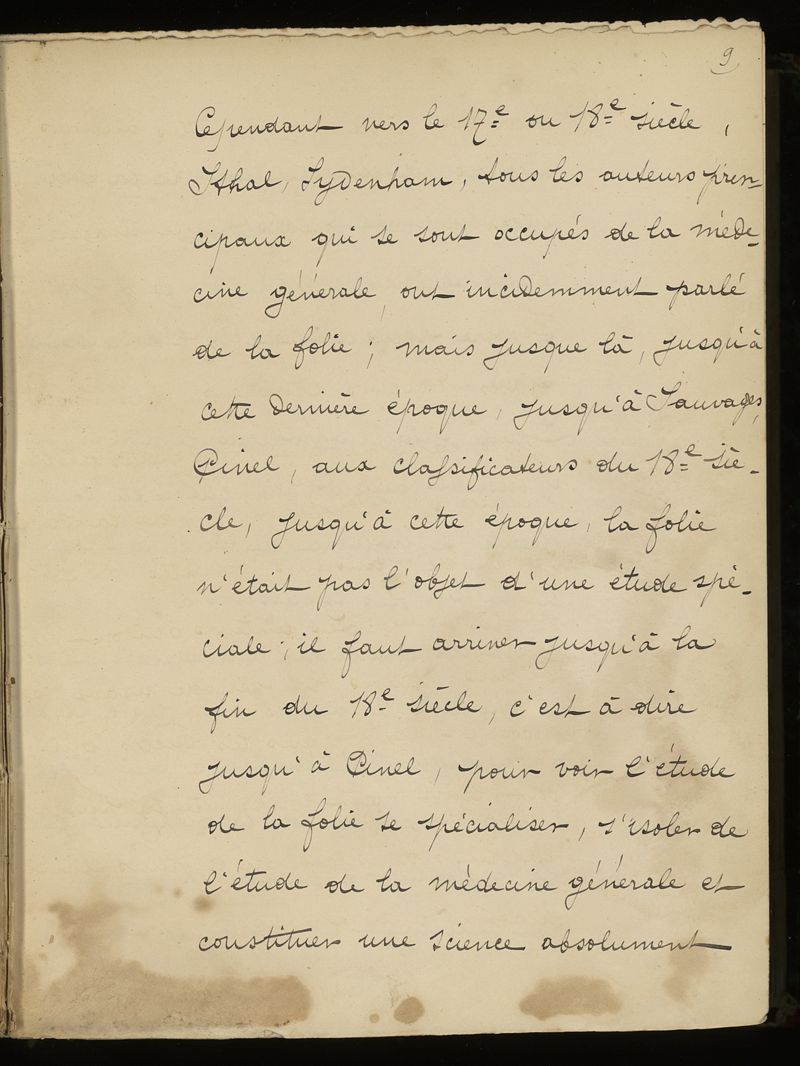 9
Cependant vers le 17e ou 18e siècle,
Sthal, Sydenham, tous les auteurs prin-
cipaux qui se sont occupés de la méde-
cine générale, ont incidemment parlé
de la folie; mais jusque là, jusqu'à
cette dernière époque, jusqu'à Sauvages,
Pinel, aux classificateurs du 18e siè-
cle, jusqu'à cette époque, la folie
n'était pas l'objet d'une étude spé-
ciale; il faut arriver jusqu'à la
fin du 18e siècle, c'est à dire
jusqu'à Pinel, pour voir l'étude
de la folie se spécialiser, s'isoler de
l'étude de la médecine générale et
constituer une science absolument